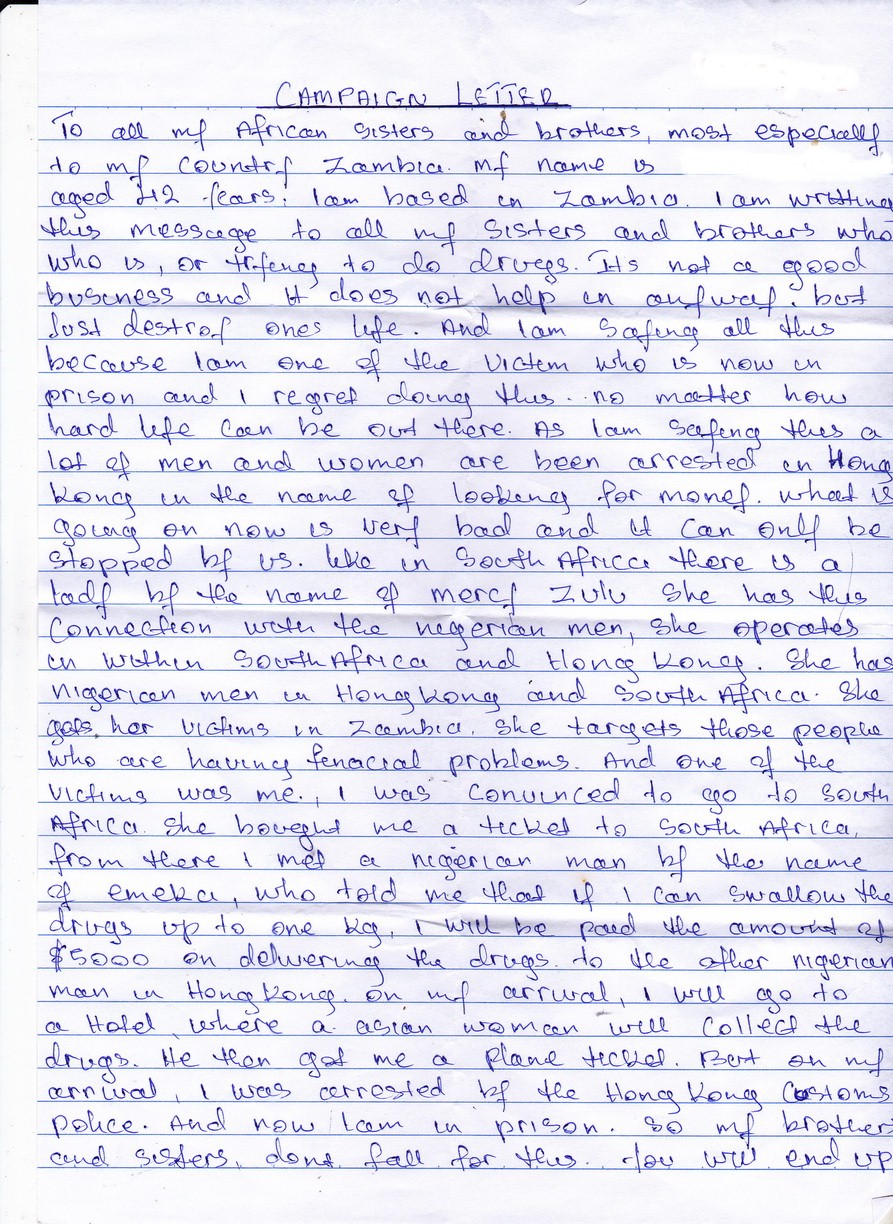 CAMPAIGN LETTER
To all my African sisters and brothers, most especially
to my country Zambia. My name is
aged 42 years. I am based in Zambia. I am writting
this messcage to all my sisters and brothers who
who is, or tryeng to do drugs. Its not a good
business and it does not help in anyway. but
Just destroy ones life. And I am Sayeng all this
because I am one of the Victem who is now in
prison and I regret doing this. no matter how
hard life can be out there. As I am sayeng this a
lot of men and women are been arrested in Hong
Kong in the name of looking for money. what is
going on now is very bad and it can only be
stopped by us. like in South Africa there is a
lady by the name of mercy Zulu She has this
Connection with the nigerian men, she operates
in within South Africa and Hong Kong. She has
nigerian men in Hong Kong and South Africa. She
gets her victims in Zambia. She targets those people
who are having fenacial problems. And one of the
Victims was me., I was convinced to go to South
Africa. She bought me a ticket to South Africa,
from there I met a nigerian man by the name
of emeka, who told me that if I can swallow the
drugs up to one kg, I will be paid the amount of
$5000 on delivering the drugs to the other nigerian
man in Hong Kong. on my arrival, I will go to
a Hotel where a asian woman will collect the
drugs. He then got me a plane ticket. But on my
arrival, I was arrested by the Hong Kong Customs
police. And now I am in prison. So my brothers
and sisters, dont fall for this. You will end up